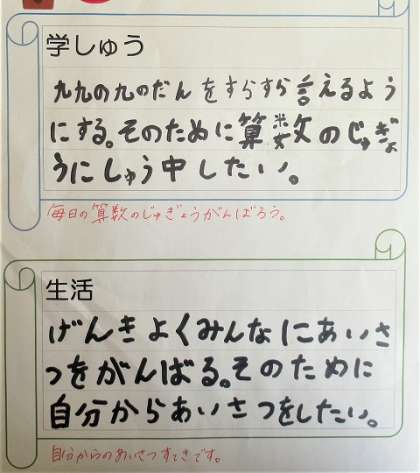 学しゅう
九九の九のだんをすらすら言えるよう
にする。そのために算数のじゅぎょ
うにしゅう中したい。
毎日の算数のじゅぎょうがんばろう。
生活
げんきよくみんなにあいさ
つをがんばる。そのために
自分からあいさつをしたい。
自分からのあいさつすてきです。